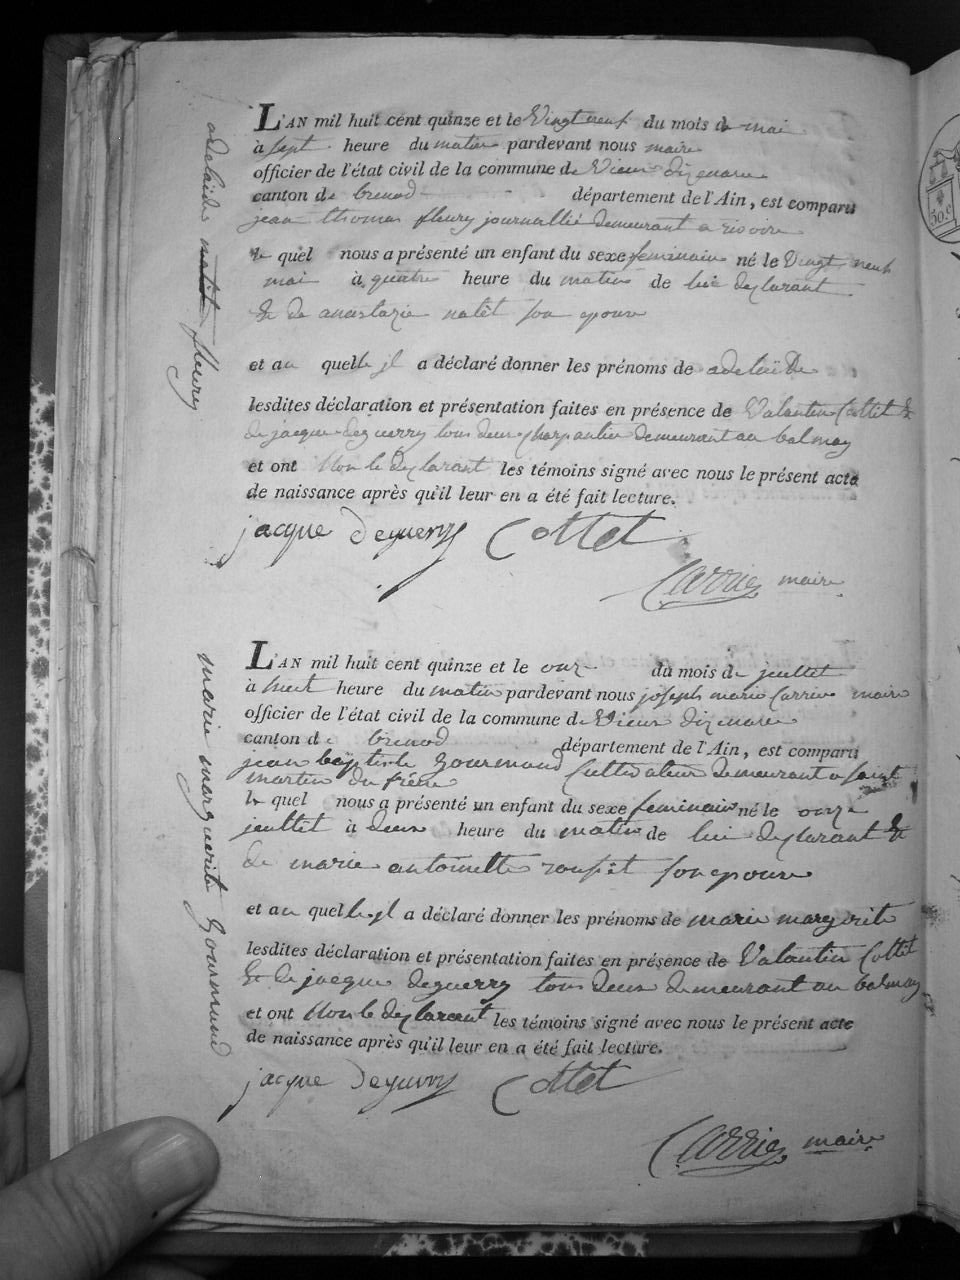 adelaide natit fleury
L'AN mil huit cent quinze et le Vingt neuf du mois de mai
à sept heure du matin pardevant nous maire
officier de l'état civil de la commune de Vieux d'izenave
canton de brenod département de l'Ain, est comparu
jean thomas fleury journallié demeurant a
le quel nous a présenté un enfant du sexe feminain né le Vingt neuf
mai à quatre heure du matin de lui déclarant
& de anastazie natit son epouse
et au quelle il a déclaré donner les prénoms de adelaïde
lesdites déclaration et présentation faites en présence de Valantin Cottet &
de jacque deguerry tous deux charpantier demeurant au balmay
et ont Non le déclarant les témoins signé avec nous le présent acte
de naissance après qu'il leur en a été fait lecture.
jacque Deguerry Cottet
Carrier maire
marie marguerite gourmand
L'AN mil huit cent quinze et le onze du mois de jeuillet
à huit heure du matin pardevant nous joseph marie Carrier maire
officier de l'état civil de la commune de Vieux dizenave
canton de brenod département de l'Ain, est comparu
jean baptiste gourmand Cultivateur demeurant a saint
martin du frene
le quel nous a présenté un enfant du sexe feminain né le onze
jeuillet à deux heure du matin de lui déclarant &
de marie antoinette son epouse
et au quelle il a déclaré donner les prénoms de marie margerite
lesdites déclaration et présentation faites en présence de Valantin Cottet
& de jacque deguerry tous deux demeurant au balmay
et ont Non le déclarant les témoins signé avec nous le présent acte
de naissance après qu'il leur en a été fait lecture.
jacque Deguerry Cottet
Carrier maire
50.c